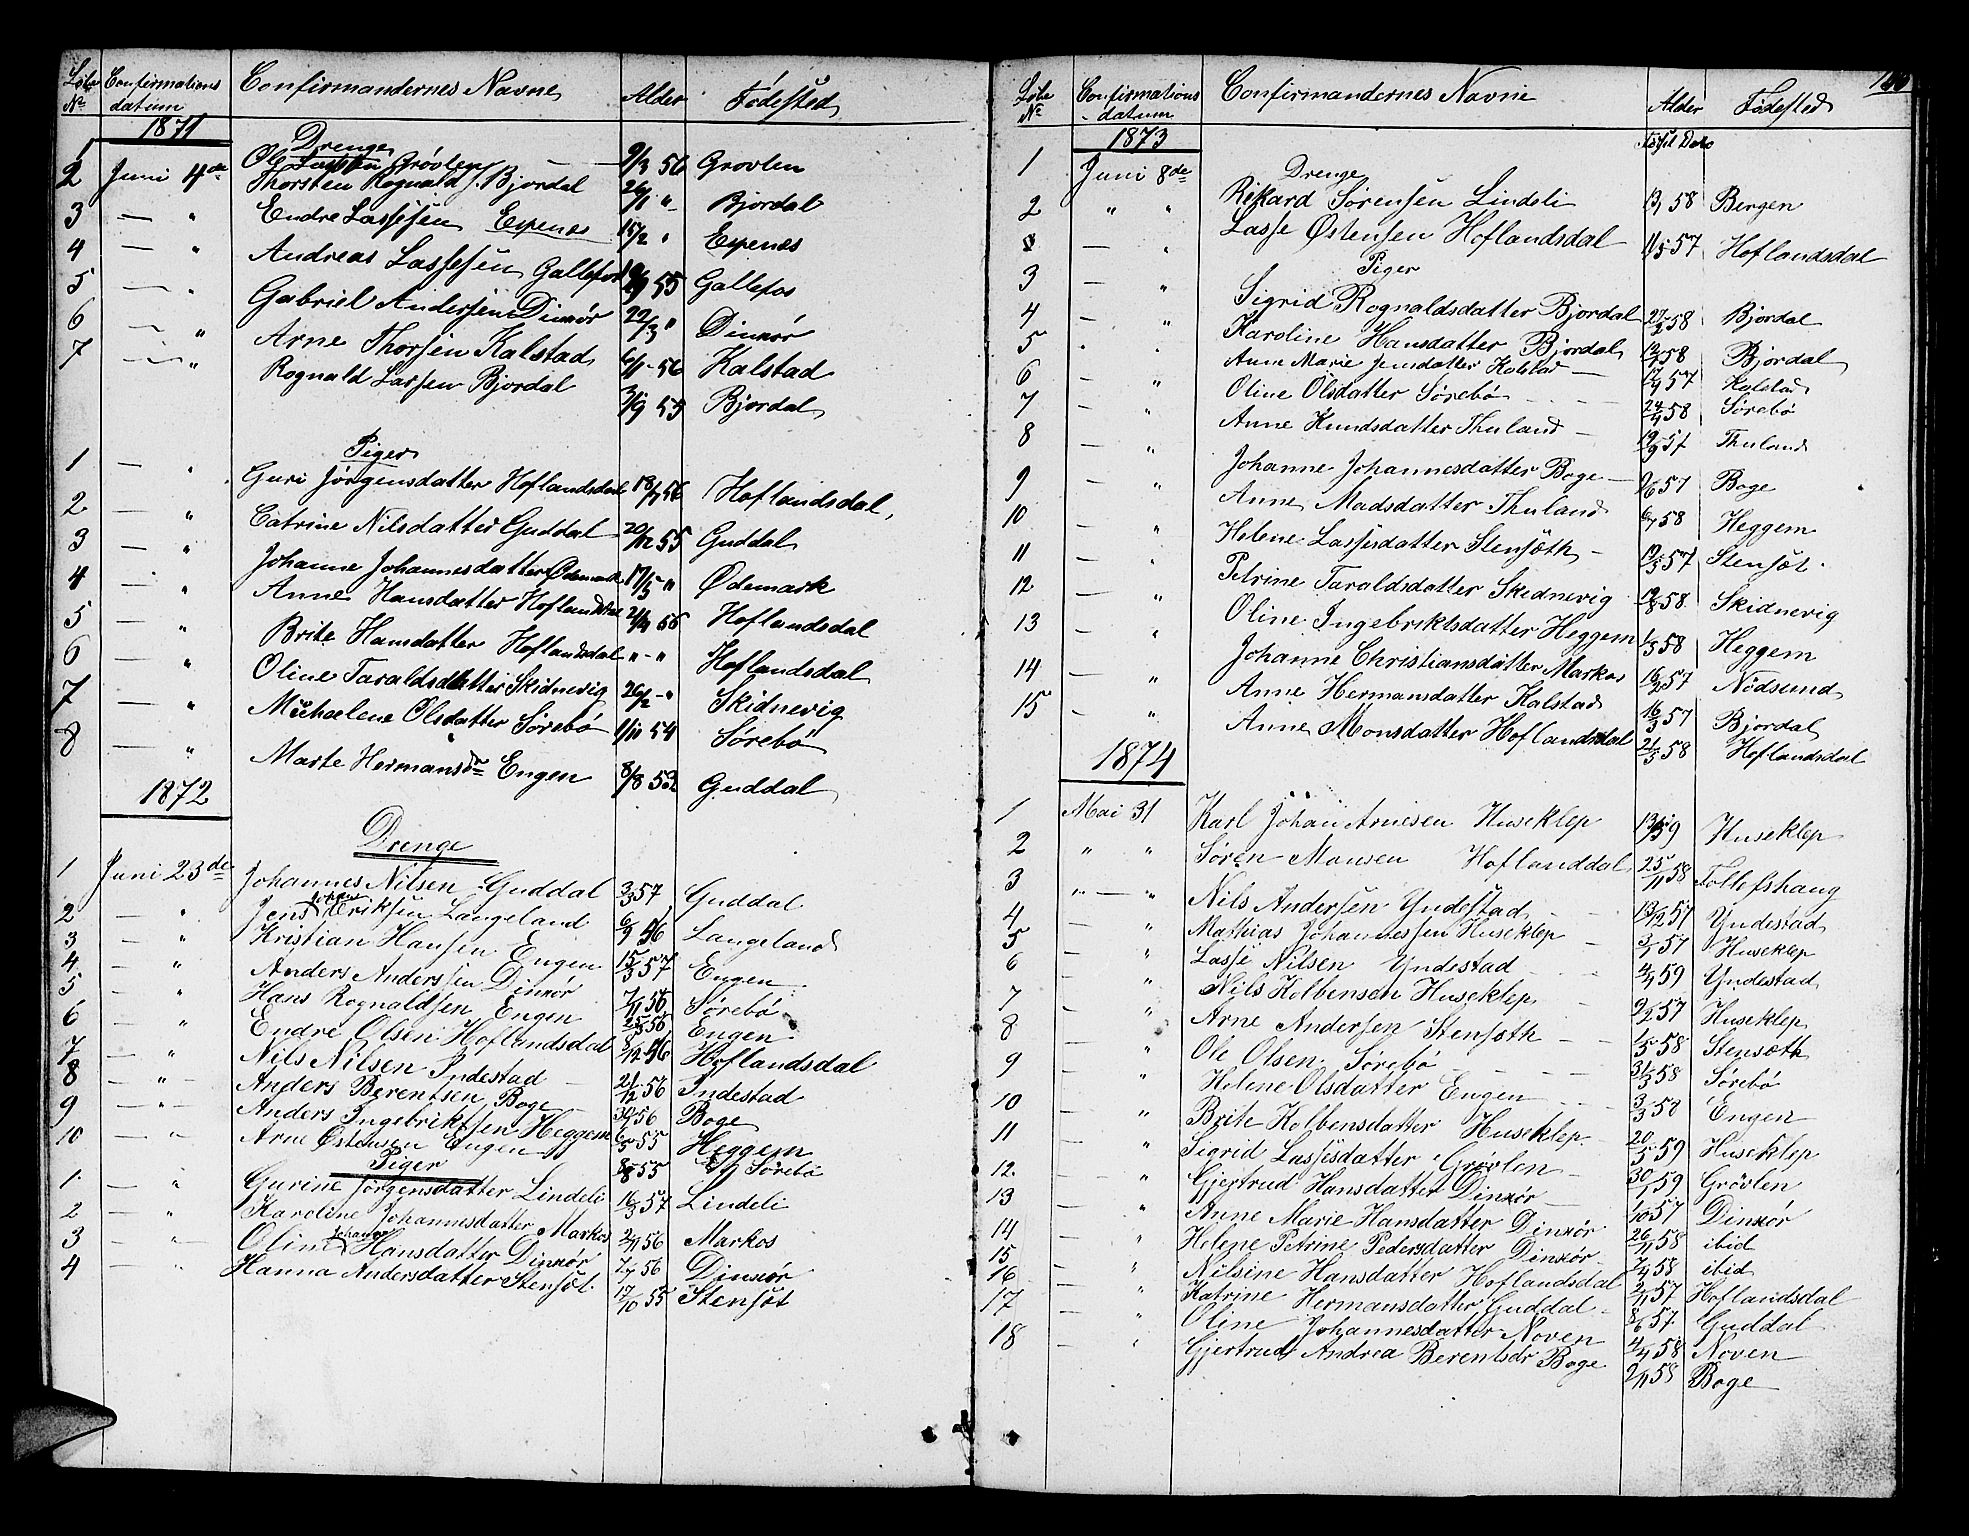 Löbe Nr Confirmations datum Confirmandernes Navne Alder Födested
1871
Drenge
1 Ole Lassen Grövlen 9/3 56 Grovlen
2 Juni 4de Thorsten Rognald s. Bjordal 26/1 " Bjordal
3 — " Endre Lassesen Espenes 15/2 " Espenes
4 — " Andreas Lassesen Gallefos 55 Gallefos
5 — " Gabriel Andersen Dinxör 22/3 " Dinxör
6 — " Arne Thorsen Kalstad 6/1 - 56 Kalstad
7 — " Rognald Lassen Bjordal 7/9 55 Bjordal
Piger
1 — " Guri Jörgensdatter Hoflandsdal 18/7 56 Hoflandsdal
2 — " Catrine Nilsdatter Guddal 20/12 55 Guddal
3 — " Johanne Johannesdatter Ödemark 17/5 " Ødemark
4 — " Anne Hansdatter Hoflandsdal 2/4 56 Hoflandsdal
5 — " Brite Hansdatter Hoflandsdal " - " Hoflandsdal
6 — " Oline Taraldsdatter Skidnevig 26/2 - " Skidnevig
7 — " Michaelene Olsdatter Sørebö 1/11 54 Sørebö
8 — " Marte Hermansdr Engen 8/8 53 Guddal
1872
Drenge
1 Juni 23de Johannes Nilsen Guddal 3/3 57 Guddal
2 — " Jens Johan Eriksen Langeland 6/9 56 Langeland
3 — " Kristian Hansen Engen 15/3 57 Engen
4 — " Anders Anderssen Dinxör 7/11 56 Sørebö
5 — " Hans Rognaldsen Engen 56 Engen
6 — " Endre Olsen Hoflandsdal 8/12 56 Hoflandsdal
7 — " Nils Nilsen Indestad 21/12 56 Indestad
8 — " — Anders Berentsen Boge 56 Boge
9 — " — Anders Ingebriktsen Heggem 6/5 55 Heggem
10 — " Arne Østensen Engen 55 Sørebö
Piger
1 — " Gurine Jörgensdatter Lindeli 16/3 57 Lindeli
2 — " Karoline Johannesdatter Markos 2/11 56 Markos
3 — " Oline Johanne Hansdatter Dinxör 56 Dinxör
4 — " Hanna Andersdatter Stensöt 17/10 55 Stensöt
160
Löbe Nr Confirmations datum Confirmandernes Navne Alder Födested
1873
Drenge
1 Juni 8de Rikkard Sørensen Lindeli 58 Bergen
2 " " Lasse Østensen Hoflandsdal 11/5 57 Hoflandsdal
Piger
— " Sigrid Rognaldsdatter Bjordal 27/2 58 Bjordal
3 — " Karoline Hansdatter Bjordal 58 Bjordal
4 — " Anne Marie Jensdatter Kalstad — 57 Kalstad
5 " " Oline Olsdatter Sørebö 24/4 58 Sörebö
6 — " Anne Kundsdatter Thuland — 19/9 57 Thuland
7 — " Johanne Johannesdatter Boge — 57 Boge
8 — " Anne Madsdatter Thuland 58 Heggem
9 — " Helene Lassesdatter Stensöth — 19/5 57 Stensöt
10 — " Petrine Taraldsdatter Skidnevig 19/8 58 Skidnevig
11 — " Oline Ingebriktsdatter Heggem 1/3 58 Heggem
12 — " Johanne Christiansdatter Markos 57 Nödsund
13 — " Anne Hermansdatter Kalstad 16/3 57 Bjordal
14 — " Anne Monsdatter Hoflandsdal 21/5 58 Hoflandsdal
15 — "
1874
1 Mai 31 Karl Johan Arnesen Huseklep 59 Huseklep
2 " " Søren Monsen Hoflanddal 25/11 58 Tollefshaug
3 " — " Nils Andersen Yndestad 13/12 57 Yndestad
4 — " Mathias Johannessen Huseklep — 57 Huseklep
5 — " Lasse Nilsen Yndestad 59 Yndestad
6 — " Nils Kolbensen Huseklep 9/2 57 Huseklep
7 — " Arne Andersen Stensöth — — 1/5 58 Stensöth
8 — " Ole Olsen Sørebö 31/3 58 Sørebö
9 — " Helene Olsdatter Engen 3/3 58 Engen
10 — " Brite Kolbensdatter Huseklep 20/5 59 Huseklep
11 — " Sigrid Lassesdatter Grövlen — 30/1 59 Grövlen
12 — " Gjertrud Hansdatter Dinxör — 57 Dinxör
13 — " Anne Marie Hansdatter Dinxör 26/11 58 ibid
14 — " Helene Petrine Pedersdatter Dinxör 58 ibid
15 — " Nilsine Hansdatter Hoflandsdal 57 Hoflandsdal
16 — " Katrine Hermansdatter Guddal 8/6 57 Guddal
17 — " Oline Johannesdatter Noven 58 Noven
18 — " Gjertrud Andrea Berentsdr Boge 2/11 58 Boge